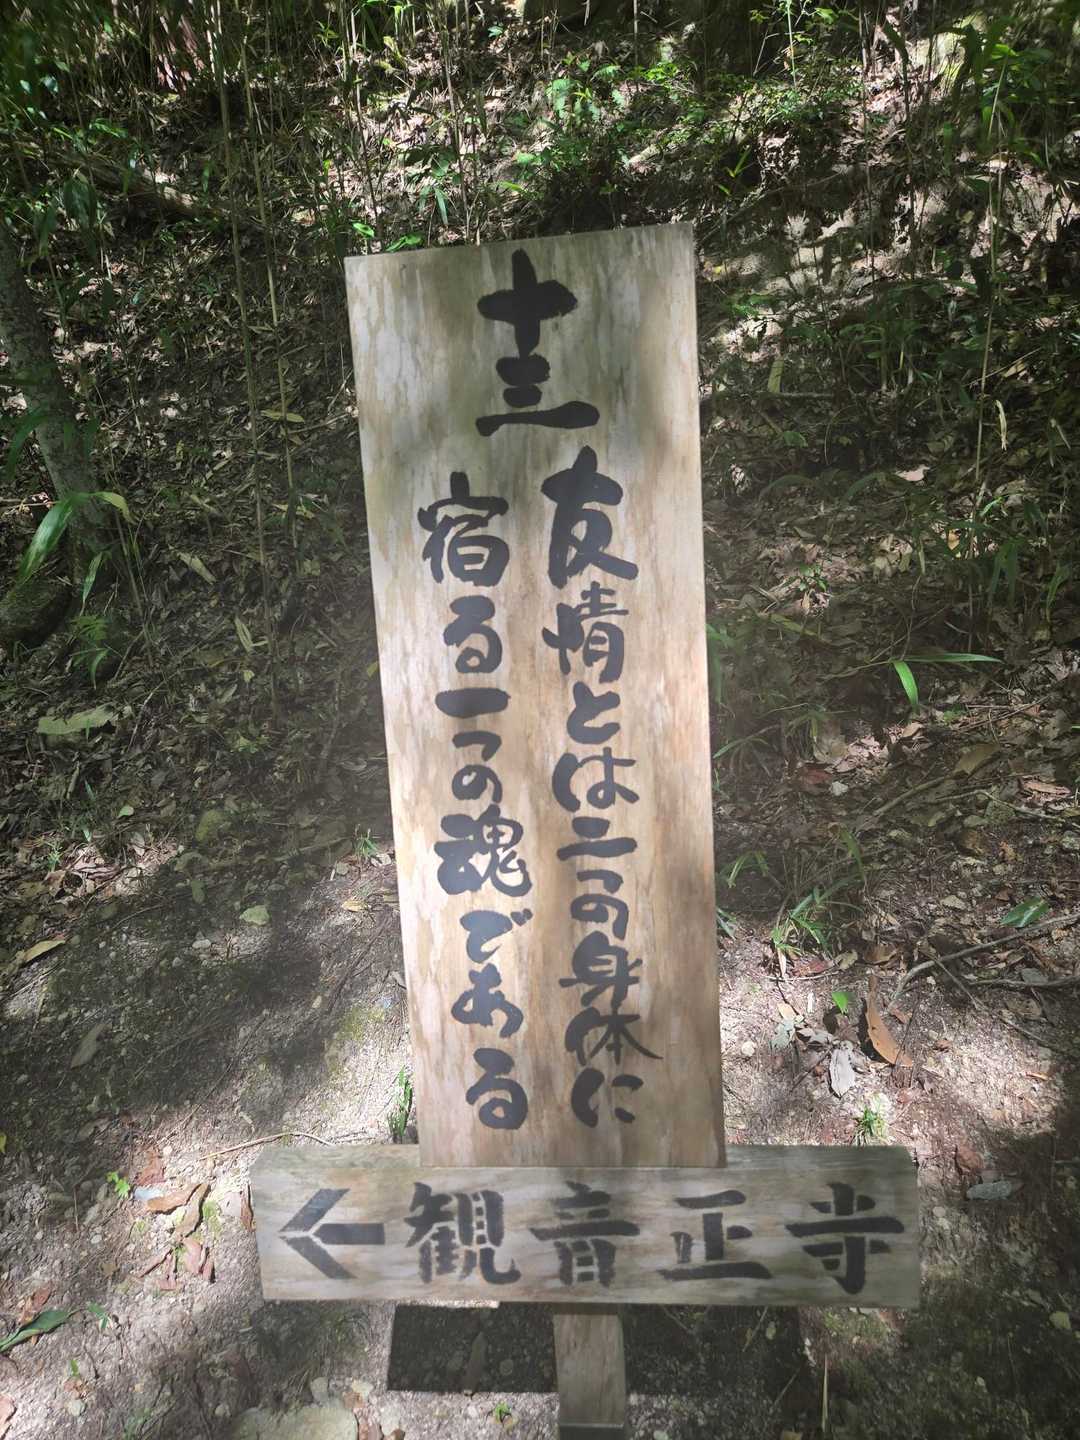 十三
友情とは二つの身体に
宿る一つの魂である
←観音正寺